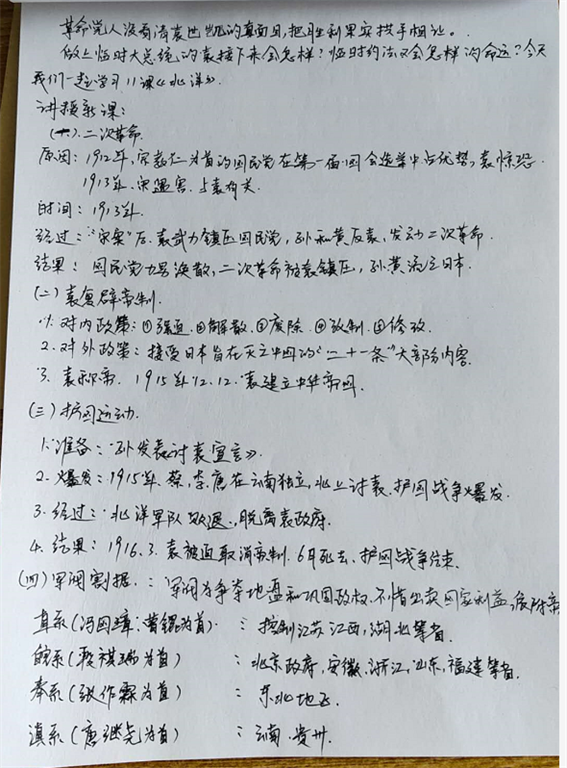 革命党人没看清袁世凯的真面目,把胜利果实拱手相让。
做上临时大总统的袁接下来会怎样?临时约法又会怎样的命运?今天
我们一起学习11课《北洋》.
讲授新课:
(一).二次革命.
原因:1912年,宋教仁为首的国民党在第一届国会选举中占优势,袁惊恐.
1913年.宋遇害.与袁有关.
时间:1913年.
经过:“宋案”后.袁武力镇压国民党,孙和黄反袁,发动二次革命.
结果:国民党力量涣散,二次革命被袁镇压,孙黄流亡日本.
(二)袁复辟帝制.
1.对内政策:①强迫.②解散.③废除.④改制.⑤修改.
2.对外政策:接受日本旨在灭亡中国的“二十一条”大部分内容.
3.袁称帝.1915年.12.12.袁建立中华帝国.
(三)护国运动.
1.准备:孙发表《讨袁宣言》.
2.爆发:1915年.蔡,李,唐在云南独立,北上讨袁.护国战争爆发.
3.经过:北洋军队败退.,脱离袁政府.
4.结果:1916.3.袁被迫取消帝制.6月死去.护国战争结束.
(四)军阀割据.:军阀为争夺地盘和巩固政权.不惜出卖国家利益,依附帝
直系(冯国璋,曹锟为首):控制江苏江西,湖北等省.
皖系(段祺瑞为首):北京政府,安徽.浙江,山东,福建等省.
奉系(张作霖为首):东北地区.
滇系(唐继尧为首):云南.贵州.